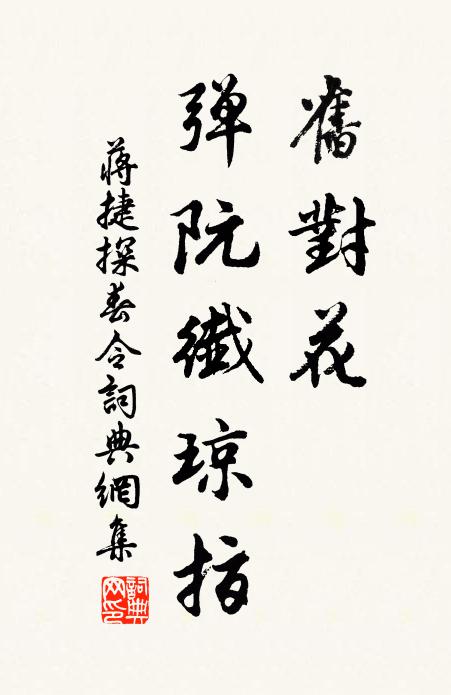 舊對花
彈阮纖瓊指
蔣捷探春令詞典網集
詞典網印